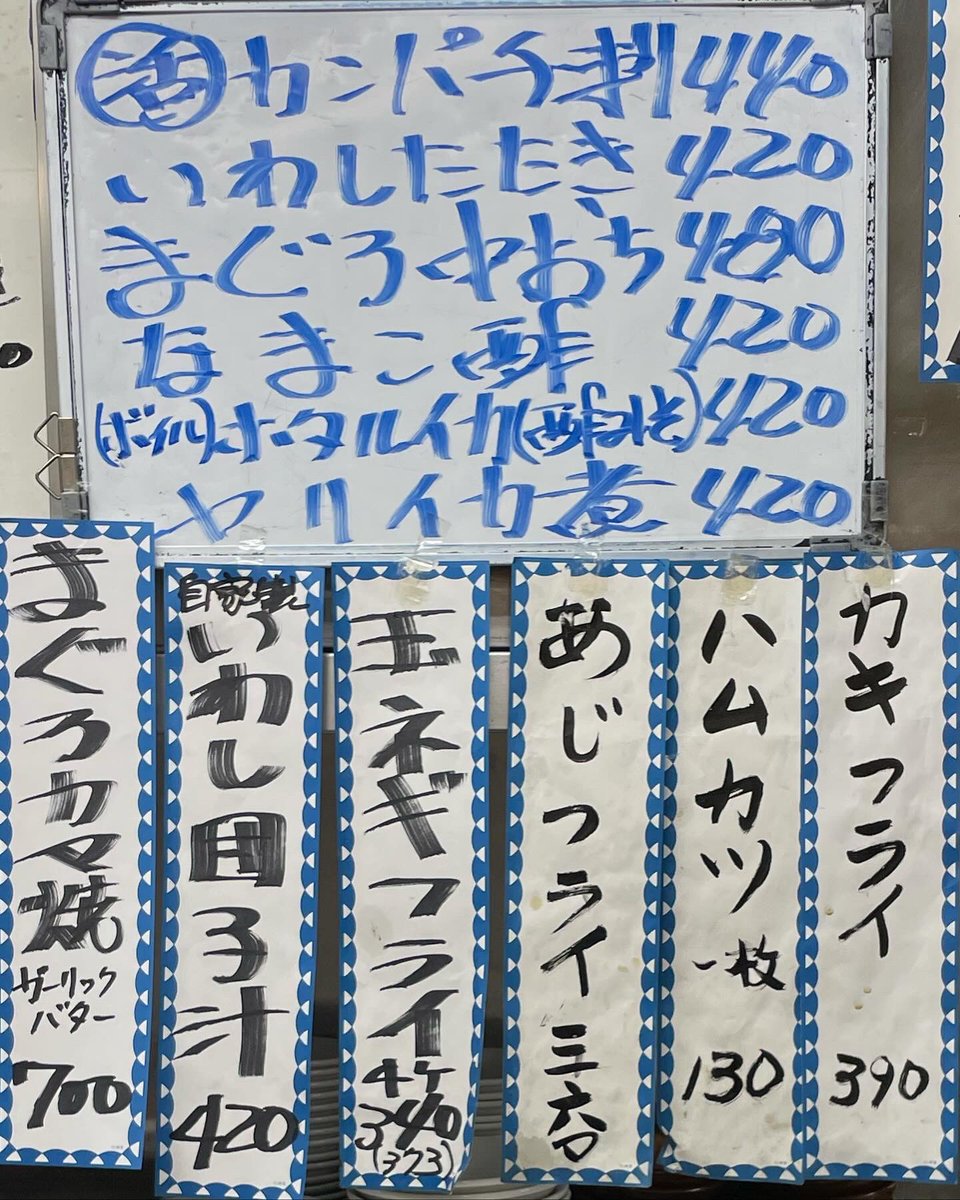 活カンパチ刺 440
いわしたたき 420
まぐろ中おち 480
なまこ酢 420
(ボイル)ホタルイカ(酢みそ) 420
ヤリイカ煮 420
カキフライ 390
ハムカツ 一枚 130
あじフライ 三六〇
玉ネギフライ
4ケ
340
(373)
自家製
いわし団子汁 420
まぐろカマ焼
ガーリック
バター
700